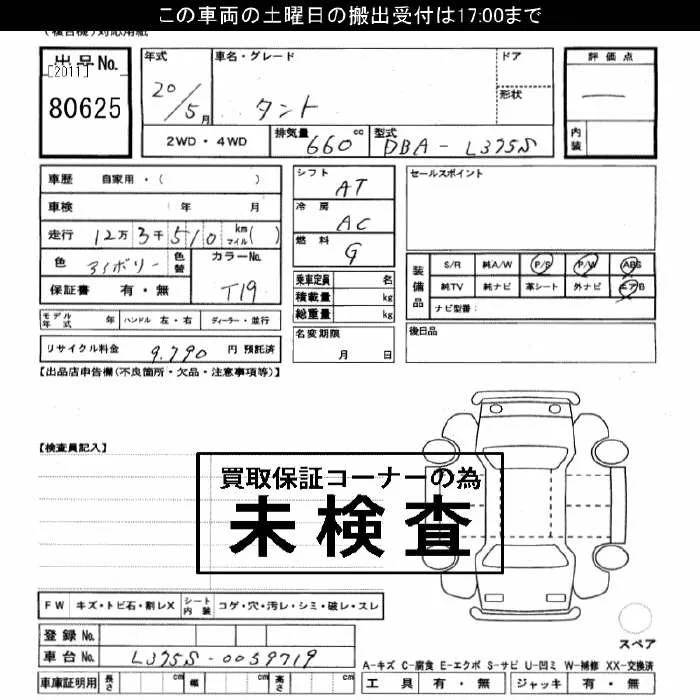 この車両の土曜日の搬出受付は17:00まで
出品No.
[2011]
80625
年式
20/5月
車名・グレード
タント
ドア
形状
2WD・4WD
排気量
660cc
型式
DBA-L375S
評価点
内装
車歴 自家用・( )
車検 年 月
走行 12万3千510 km マイル( )
色
アイボリー
色替
カラーNo.
T19
保証書 有・無
シフト
AT
冷房
AC
燃料
G
乗車定員 名
積載量 kg
総重量 kg
セールスポイント
装備品
S/R 純A/W P/S P/W ABS
純TV 純ナビ 革シート 外ナビ エアB
ナビ型番:
モデル年式 年 ハンドル 左・右 ディーラー・並行
名変期限
月 日
後日品
リサイクル料金 9,790 円 預託済
【出品店申告欄(不良箇所・欠品・注意事項等)】
【検査員記入】
買取保証コーナーの為
未検査
FW キズ・トビ石・割レX シート内装 コゲ・穴・汚レ・シミ・破レ・スレ
スペア
登録No.
車台No. L375S-0059719
A-キズ C-腐食 E-エクボ S-サビ U-凹ミ W-補修 XX-交換済
車庫証明用 長さ cm 幅 cm 高さ cm
工具 有・無 ジャッキ 有・無